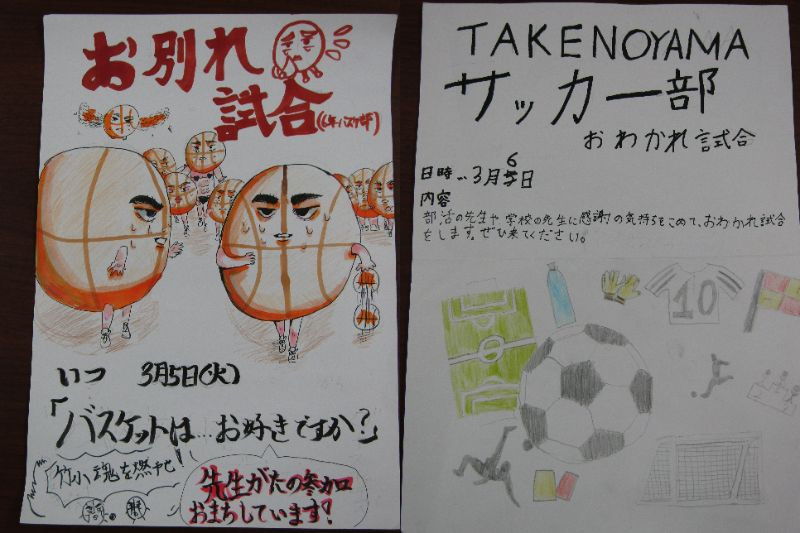 お別れ
試合(6年バスケ部)
いつ 3月5日(火)
「バスケットは…お好きですか?」
竹小魂を燃やせ
先生がたの参加
おまちしています!
TAKENOYAMA
サッカー部
おわかれ試合
日時…3月6日
内容
部活の先生や学校の先生に感謝の気持ちをこめて、おわかれ試合
をします。ぜひ来てください。
10